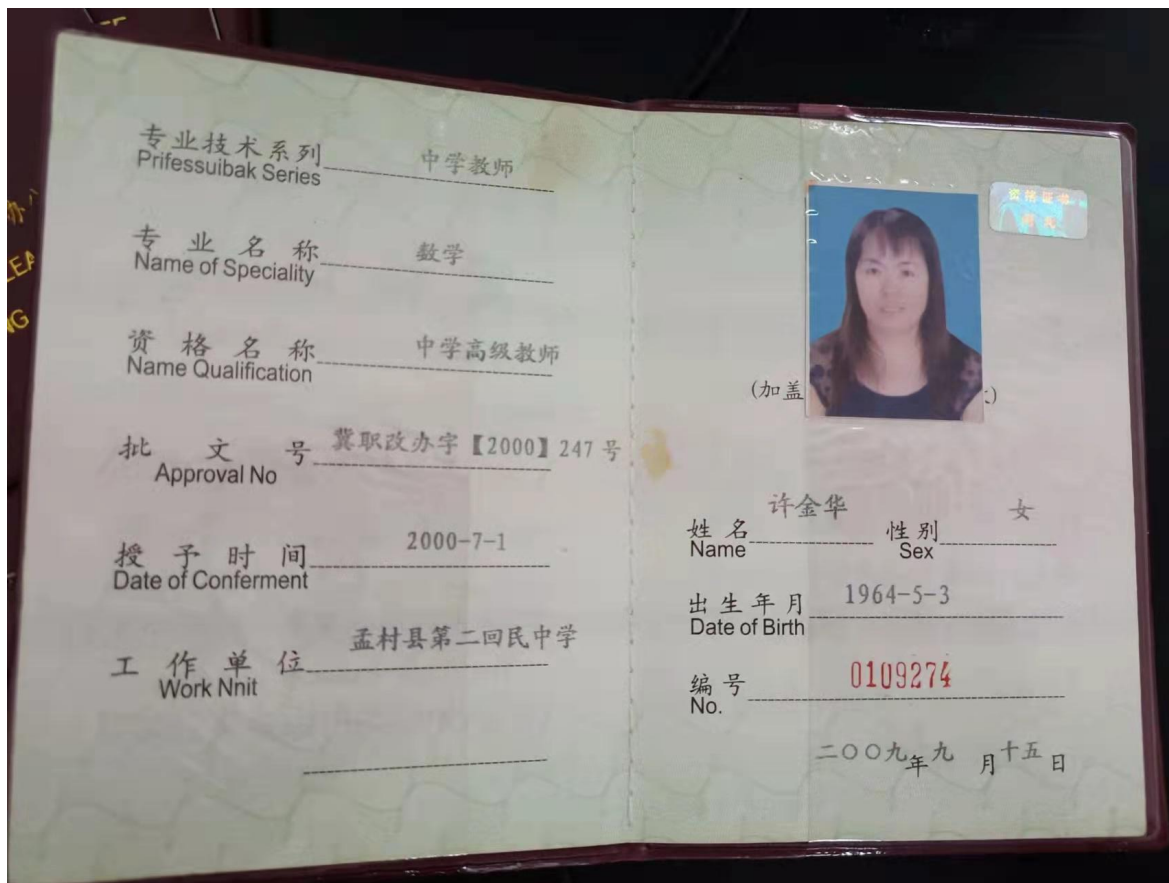 专业技术系列 中学教师
Prifessuibak Series
专业名称 数学
Name of Speciality
资格名称 中学高级教师
Name Qualification
批文号 冀职改办字【2000】247号
Approval No
授予时间 2000-7-1
Date of Conferment
工作单位 孟村县第二回民中学
Work Nnit
(加盖
)
姓名 许金华 性别 女
Name Sex
出生年月 1964-5-3
Date of Birth
编号 0109274
No.
二〇〇九年九月十五日
资格证书